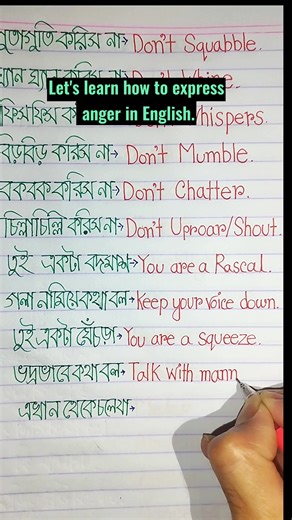 করিস না→ Don't Squabble.
ঘ্যান ঘ্যান করিস না→ Don't Whine.
Let's learn how to express
anger in English.
ফিসফিস Whispers.
বিড়বিড় করিস না→ Don't Mumble.
বকবক করিস না→ Don't Chatter.
চিল্লাচিল্লি করিস না→ Don't Uproar/Shout.
তুই একটা বদমাশ→ You are a Rascal.
গলা নামিয়ে কথা বল→ Keep your voice down.
তুই একটা ছেঁচড়া→ You are a squeeze.
ভদ্রভাবে কথা বল→ Talk with mann
এখান থেকে চলে যা→